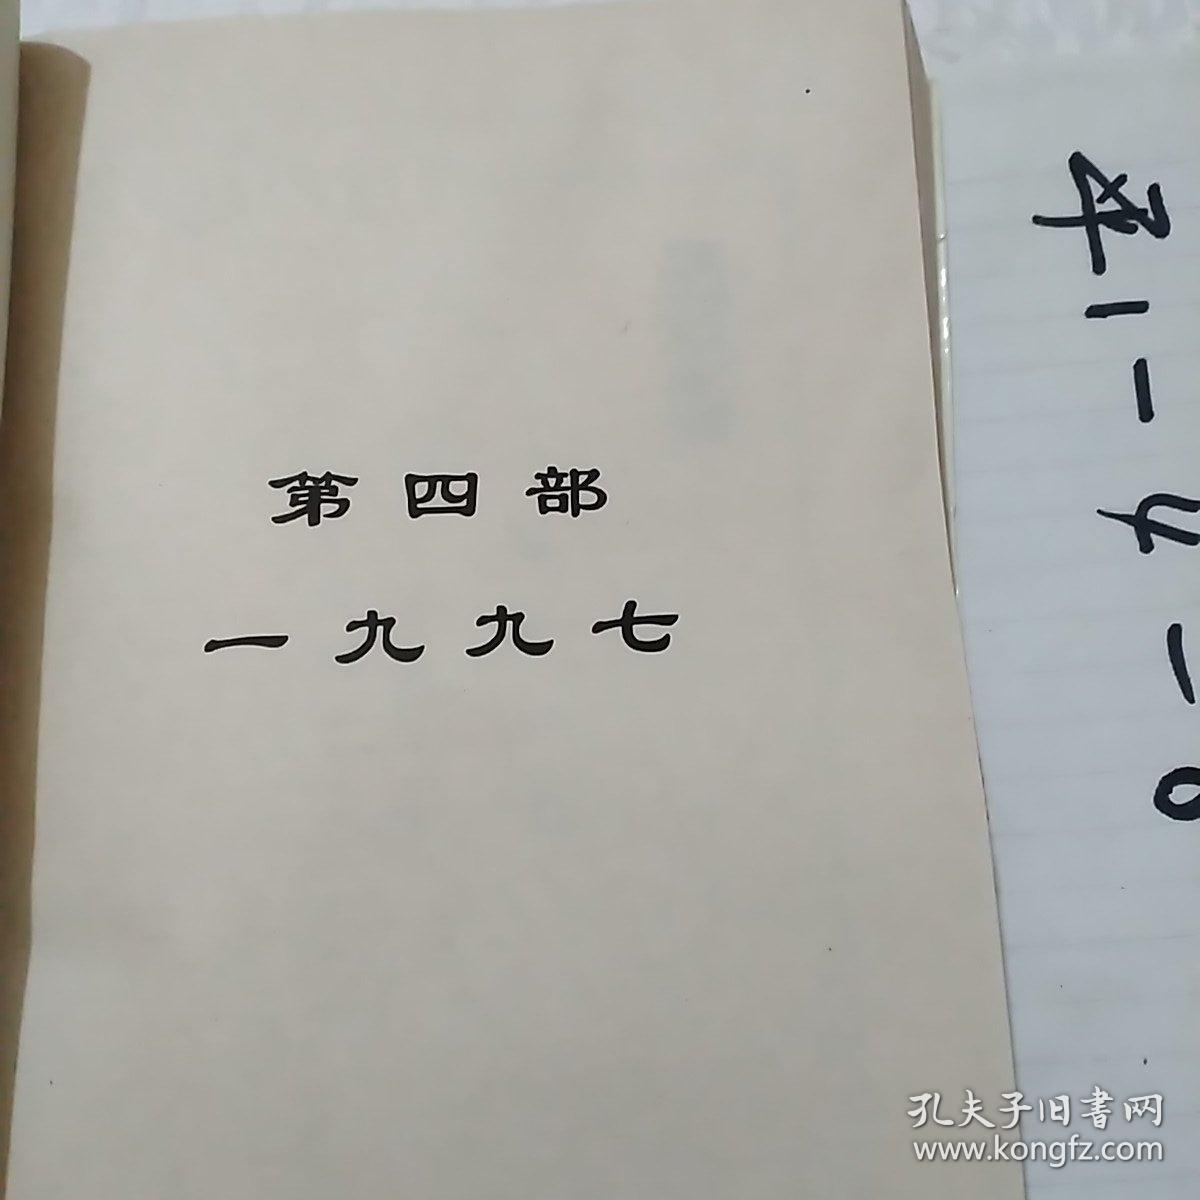 第四部
一九九七
孔夫子旧书网
www.kongfz.com